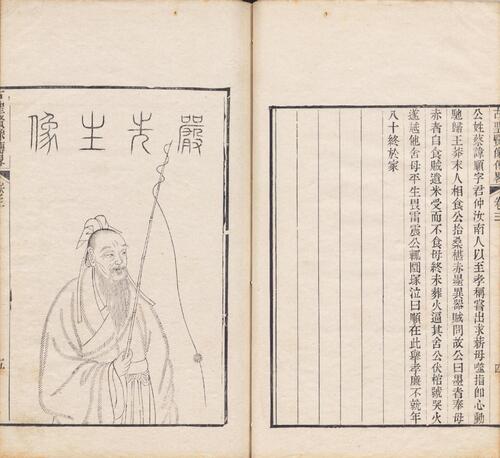 古聖賢像傳畧 卷三
公姓蔡諱順字君仲汝南人以至孝稱嘗出求薪母噬指卽心動
馳歸王莽末人相食公拾桑椹赤黑異器賊問故公曰黑者奉母
赤者自食賊遺米受而不食母終未葬火逼其舍公伏棺號哭火
遂越他舍母平生畏雷震公輒圜塚泣曰順在此舉孝廉不就年
八十終於家
四
嚴先生像
古聖賢像傳畧 卷三
五